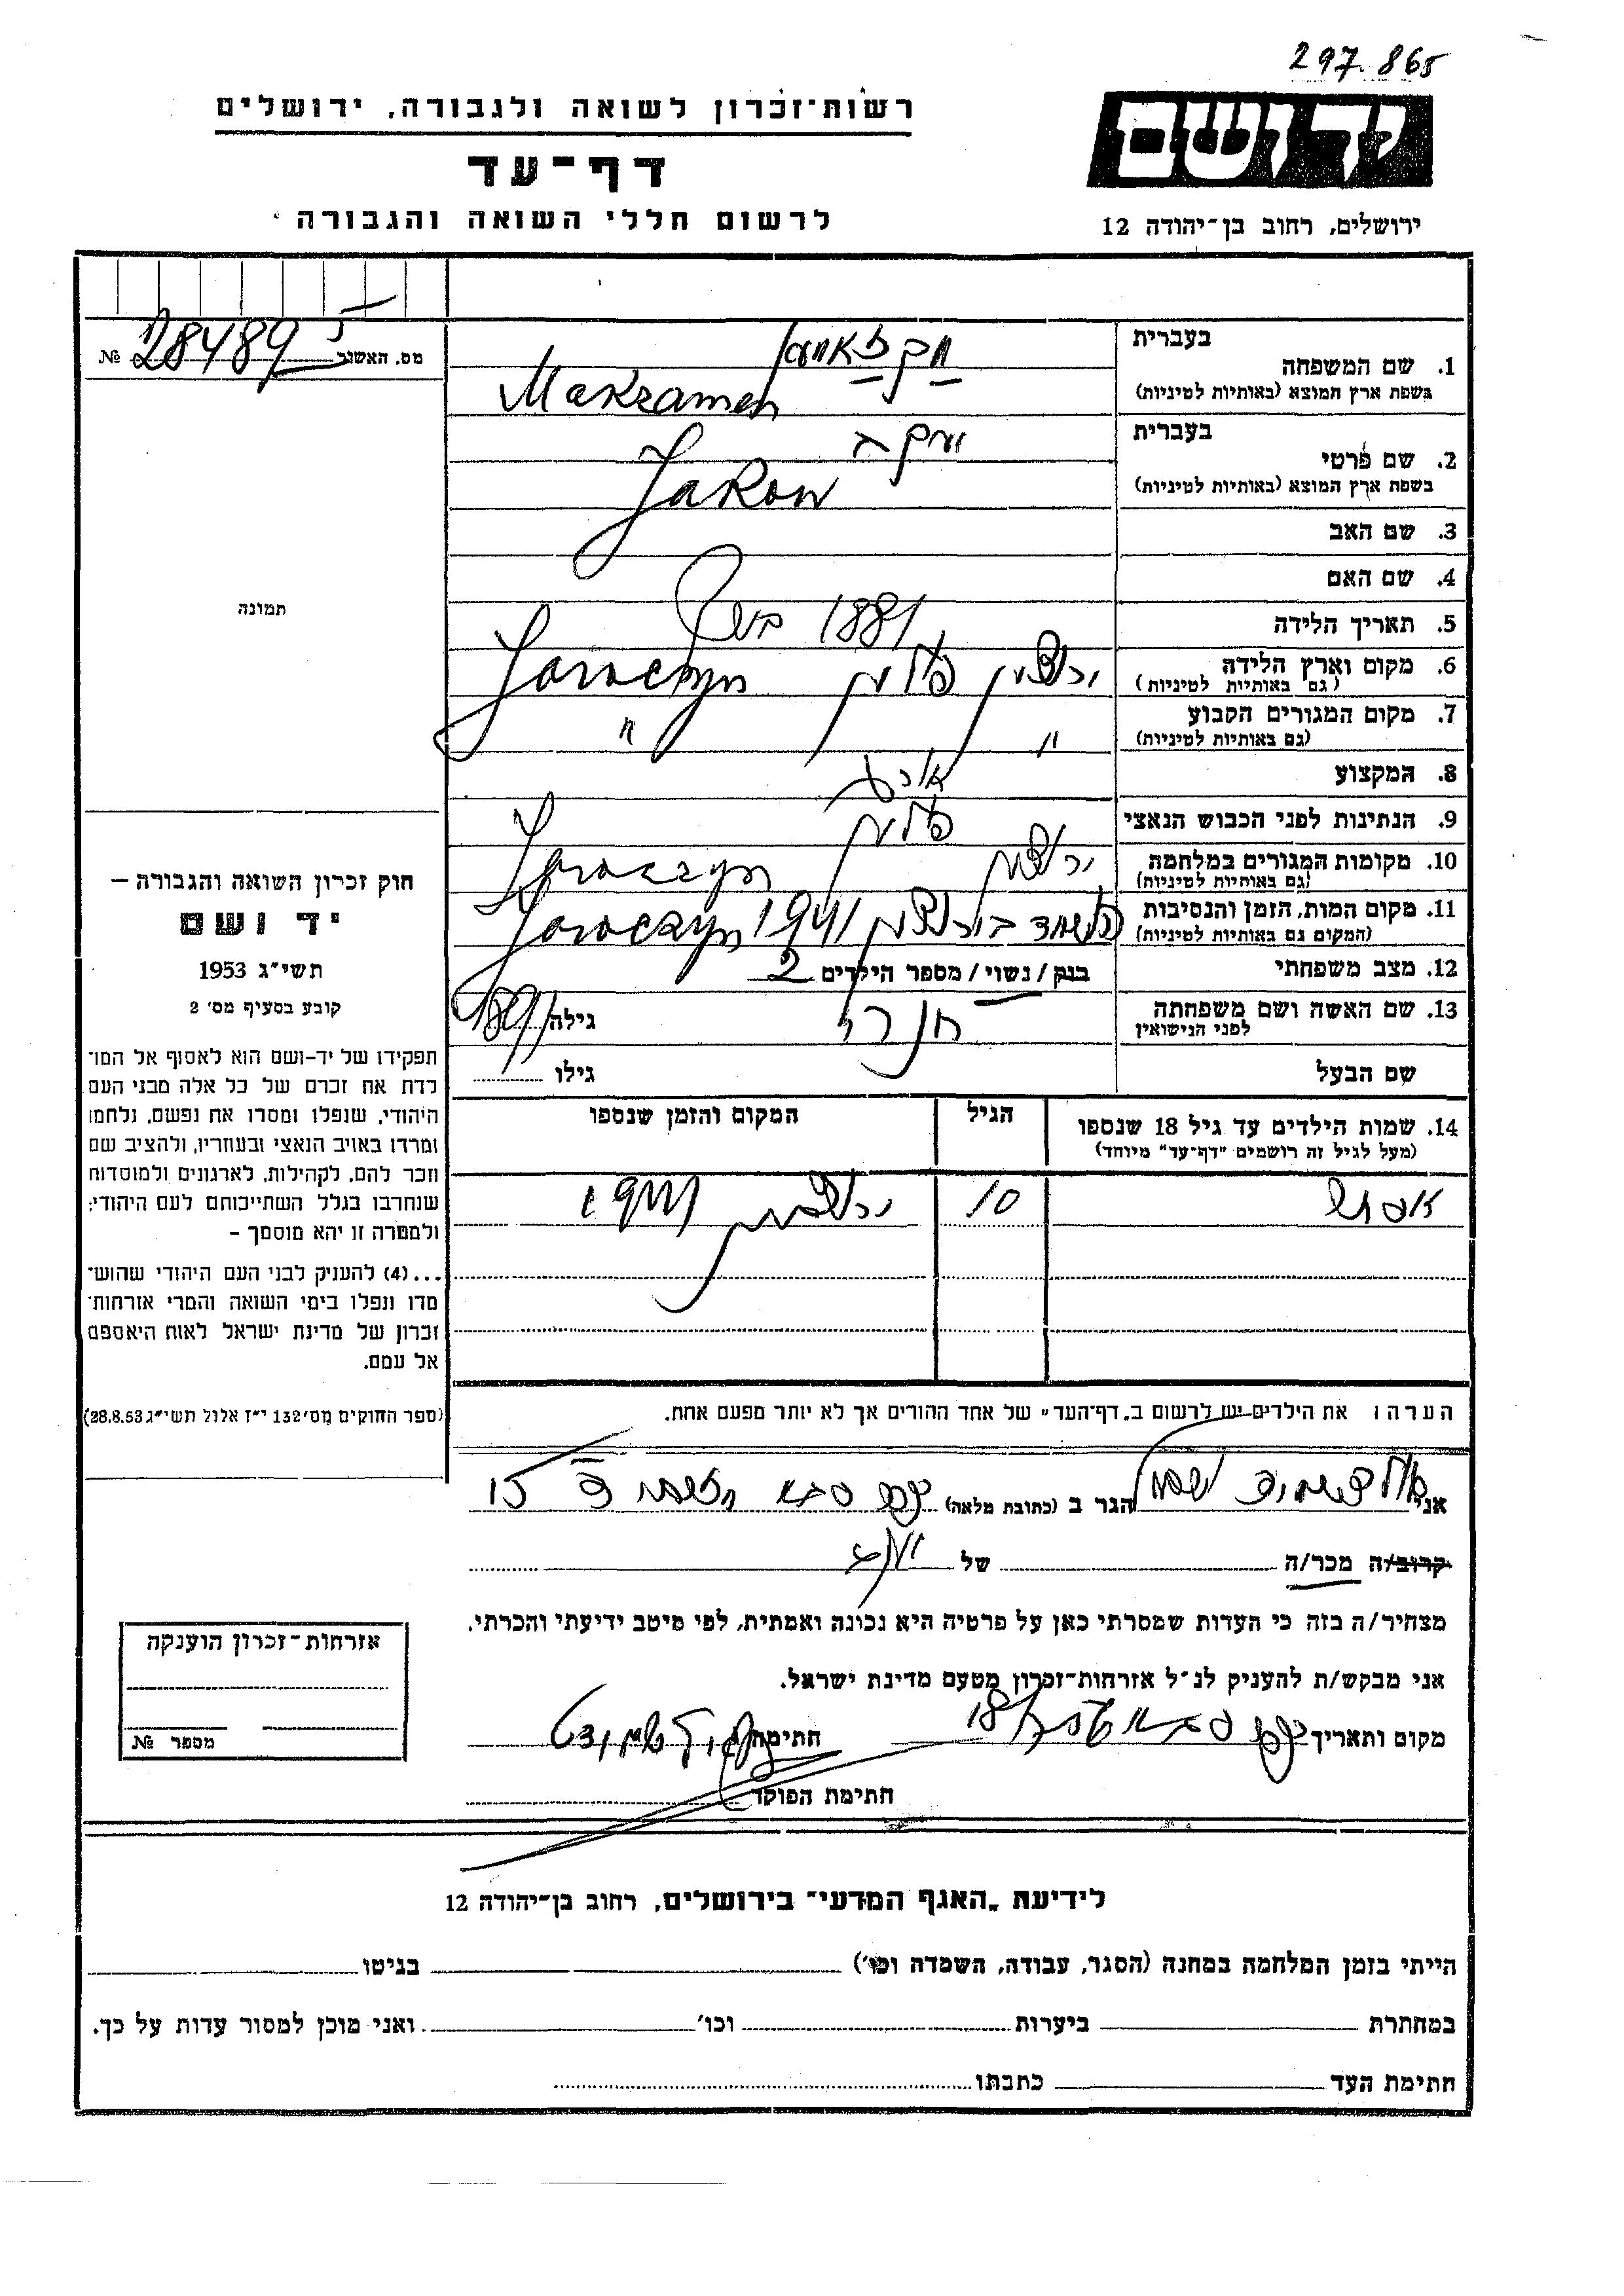 297.865
רשות־זכרון לשואה ולגבורה, ירושלים
יד ושם
דף־עד
לרשום חללי השואה והגבורה
ירושלים, רחוב בן־יהודה 12
מס. האשור № 28489
בעברית
1. שם המשפחה
בשפת ארץ המוצא (באותיות לטיניות)
בעברית
2. שם פרטי יעקב
בשפת ארץ המוצא (באותיות לטיניות) Jakow
3. שם האב
4. שם האם
5. תאריך הלידה 1881
6. מקום וארץ הלידה פולין
(גם באותיות לטיניות)
7. מקום המגורים הקבוע " "
(גם באותיות לטיניות)
8. המקצוע
9. הנתינות לפני הכבוש הנאצי פולין
10. מקומות המגורים במלחמה Joroczyn
(גם באותיות לטיניות)
11. מקום המות, הזמן והנסיבות 1941 Joroczyn
(המקום גם באותיות לטיניות)
12. מצב משפחתי בנק / נשוי / מספר הילדים 2
13. שם האשה ושם משפחתה גילה
לפני הנישואין
שם הבעל גילו
14. שמות הילדים עד גיל 18 שנספו הגיל המקום והזמן שנספו
(מעל לגיל זה רושמים "דף־עד" מיוחד)
10 1941
הערה: את הילדים יש לרשום ב"דף־העד" של אחד ההורים אך לא יותר מפעם אחת.
תמונה
חוק זכרון השואה והגבורה —
יד ושם
תשי"ג 1953
קובע בסעיף מס' 2
תפקידו של יד־ושם הוא לאסוף אל המו־
לדת את זכרם של כל אלה מבני העם
היהודי, שנפלו ומסרו את נפשם, נלחמו
ומרדו באויב הנאצי ובעוזריו, ולהציב שם
וזכר להם, לקהילות, לארגונים ולמוסדות
שנחרבו בגלל השתייכותם לעם היהודי;
ולמטרה זו יהא מוסמך –
...(4) להעניק לבני העם היהודי שהוש־
מדו ונפלו בימי השואה והמרי אזרחות־
זכרון של מדינת ישראל לאות היאספם
אל עמם.
(ספר החוקים מס' 132 י"ז אלול תשי"ג 28.8.53)
אני הגר ב (כתובת מלאה) כפר סבא 15
קרוב/ה מכר/ה של
מצהיר/ה בזה כי העדות שמסרתי כאן על פרטיה היא נכונה ואמתית, לפי מיטב ידיעתי והכרתי.
אני מבקש/ת להעניק לנ"ל אזרחות־זכרון מטעם מדינת ישראל.
מקום ותאריך כפר סבא חתימה
חתימת הפוקד
אזרחות־זכרון הוענקה
מספר №
לידיעת "האגף המדעי" בירושלים, רחוב בן־יהודה 12
הייתי בזמן המלחמה במחנה (הסגר, עבודה, השמדה וכו') בגיטו
במחתרת ביערות וכו' ואני מוכן למסור עדות על כך.
חתימת העד כתבתו